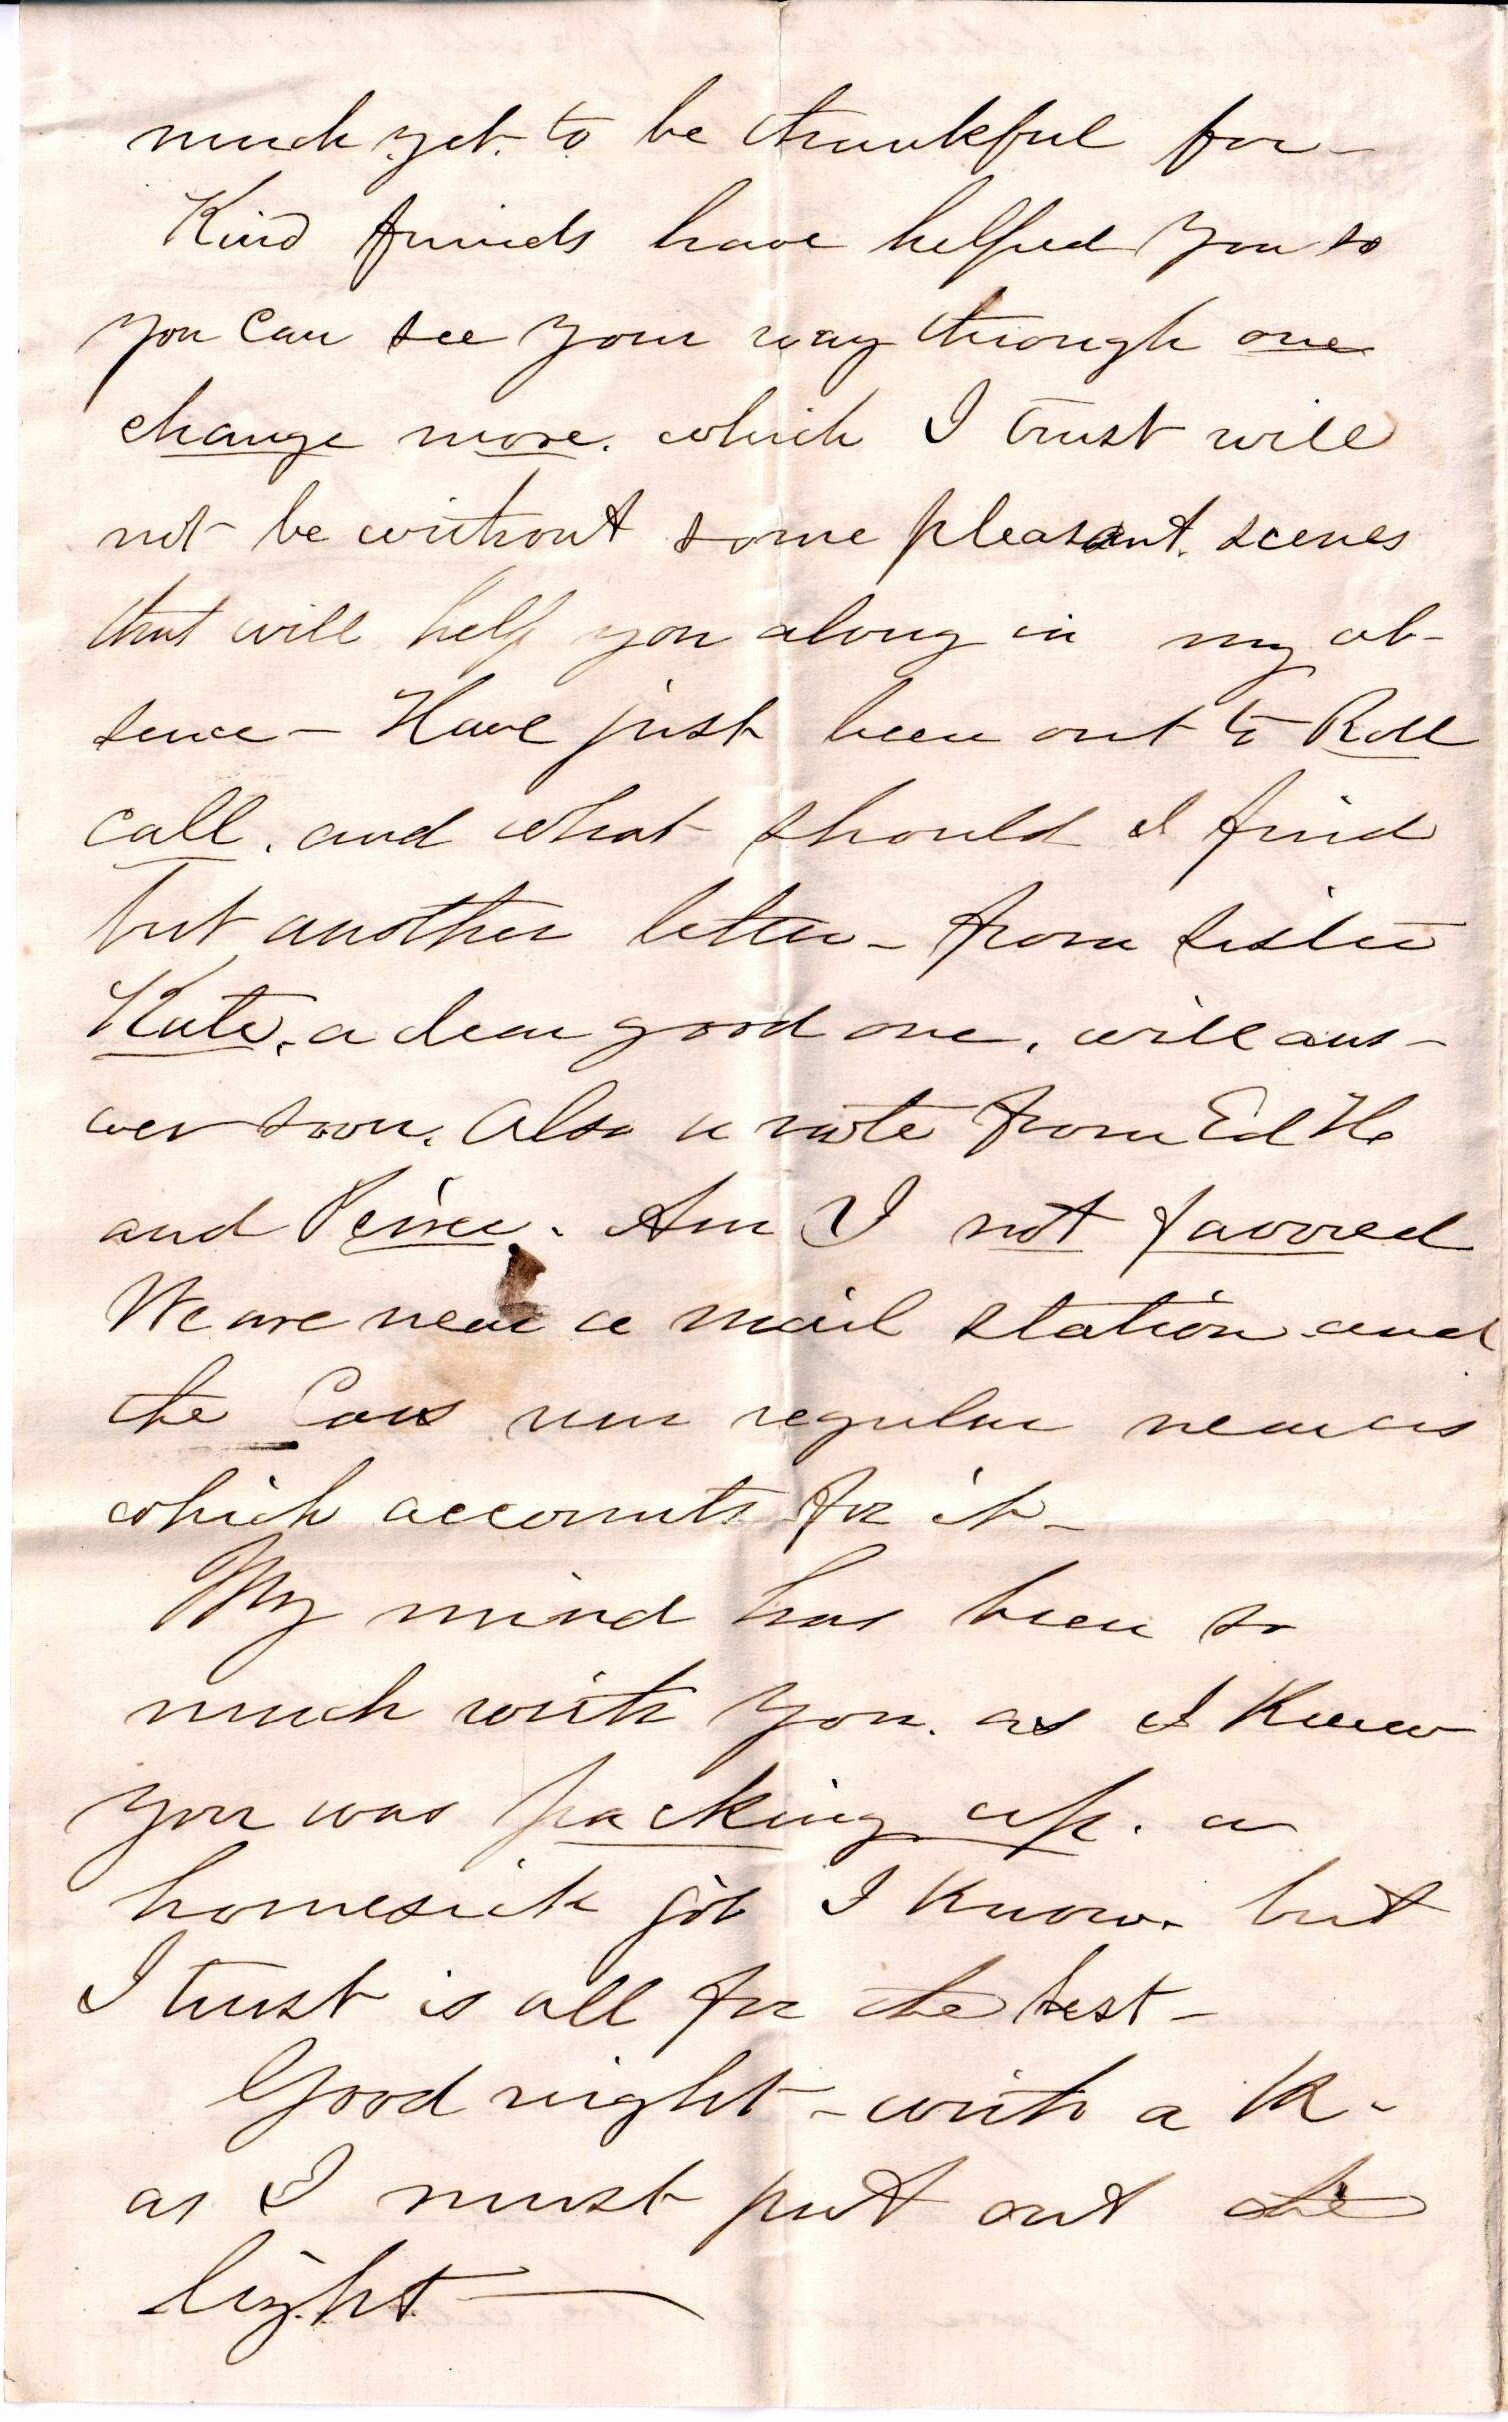 much yet to be thankful for—
Kind friends have helped you so
you can see your way through one
change more. which I trust will
not be without some pleasant. scenes
that will help you along in my ab-
sence — Have just been out to Roll
call. and what should I find
but another letter — from sister
Kate. a dear good one. will ans-
wer soon. Also a note from Ed H
and . Am I not favored
We are near a mail station and
the Cars run regular near us
which accounts for it —
My mind has been so
much with you. as I knew
you was packing up. a
homesick job I know. but
I trust is all for the best —
Good night — with a K-
as I must put out the
light —